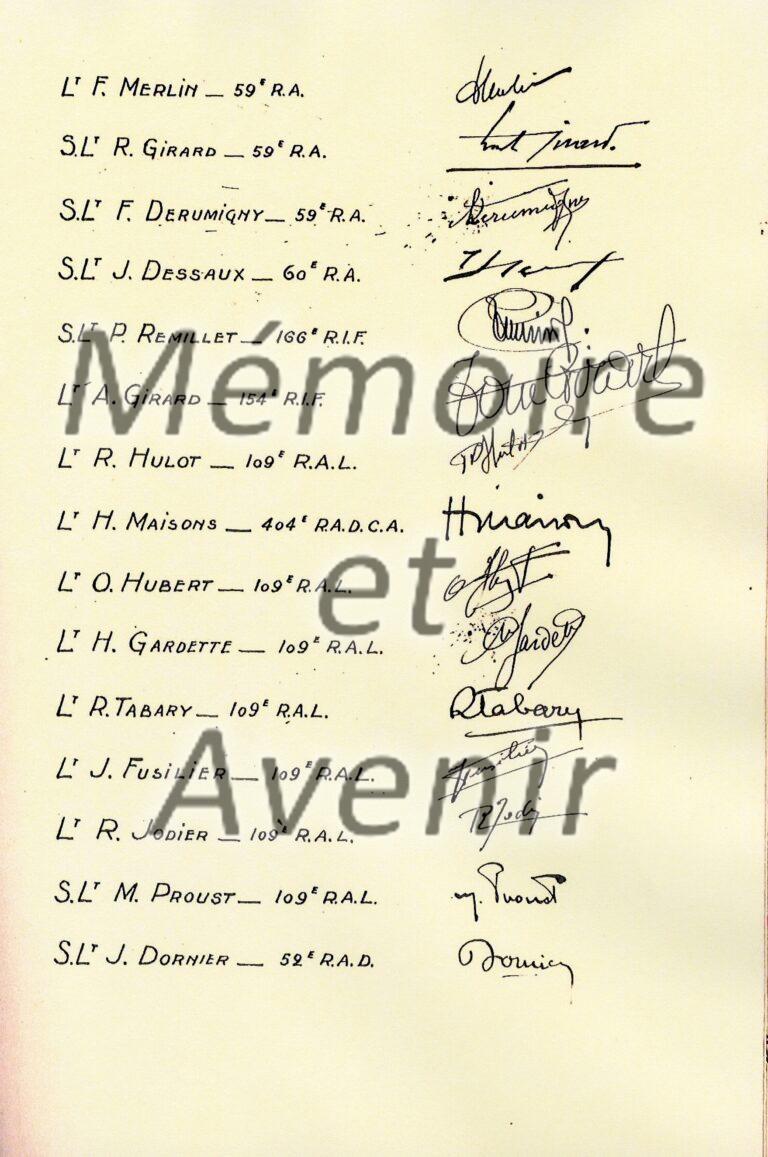 Lᵀ F. MERLIN — 59ᴱ R.A. Merlin
S.Lᵀ R. GIRARD — 59ᴱ R.A. Girard.
S.Lᵀ F. DERUMIGNY — 59ᴱ R.A. Derumigny
S.Lᵀ J. DESSAUX — 60ᴱ R.A.
S.Lᵀ P. REMILLET — 166ᴱ R.I.F.
Mémoire
Lᵀ A. GIRARD — 154ᴱ R.I.F. Girard
Lᵀ R. HULOT — 109ᴱ R.A.L. Hulot
Lᵀ H. MAISONS — 404ᴱ R.A.D.C.A. HMaisons
et
Lᵀ O. HUBERT — 109ᴱ R.A.L.
Lᵀ H. GARDETTE — 109ᴱ R.A.L. Gardette
Lᵀ R. TABARY — 109ᴱ R.A.L. RTabary
Avenir
Lᵀ J. FUSILIER — 109ᴱ R.A.L. Fusilier
Lᵀ R. JODIER — 109ᴱ R.A.L. R Jodier
S.Lᵀ M. PROUST — 109ᴱ R.A.L. M. Proust
S.Lᵀ J. DORNIER — 52ᴱ R.A.D. Dornier